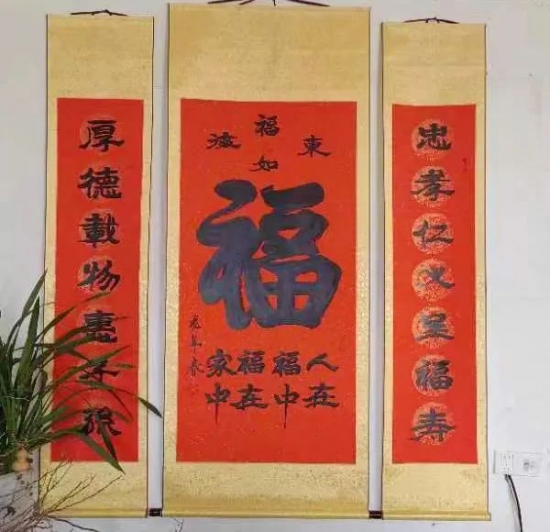 忠孝仁义呈福寿
福如東海
福
人在
福中
福在
家中
龙年春
厚德載物惠子孫